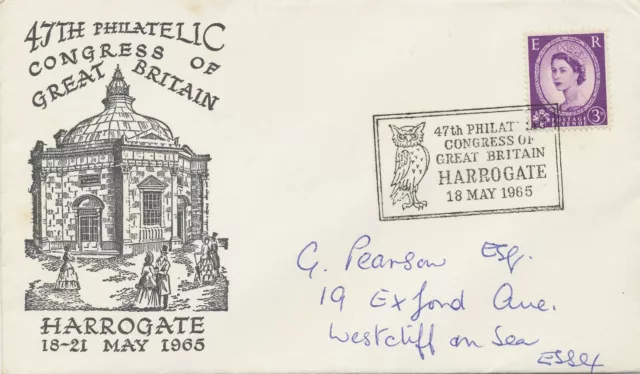 47TH PHILATELIC
CONGRESS OF
GREAT BRITAIN
HARROGATE
18-21 MAY 1965
E R
3D
POSTAGE REVENUE
47th PHILAT
CONGRESS OF
GREAT BRITAIN
HARROGATE
18 MAY 1965
G. Pearson Esq.
19 Exford Ave.
Westcliff on Sea
Essex